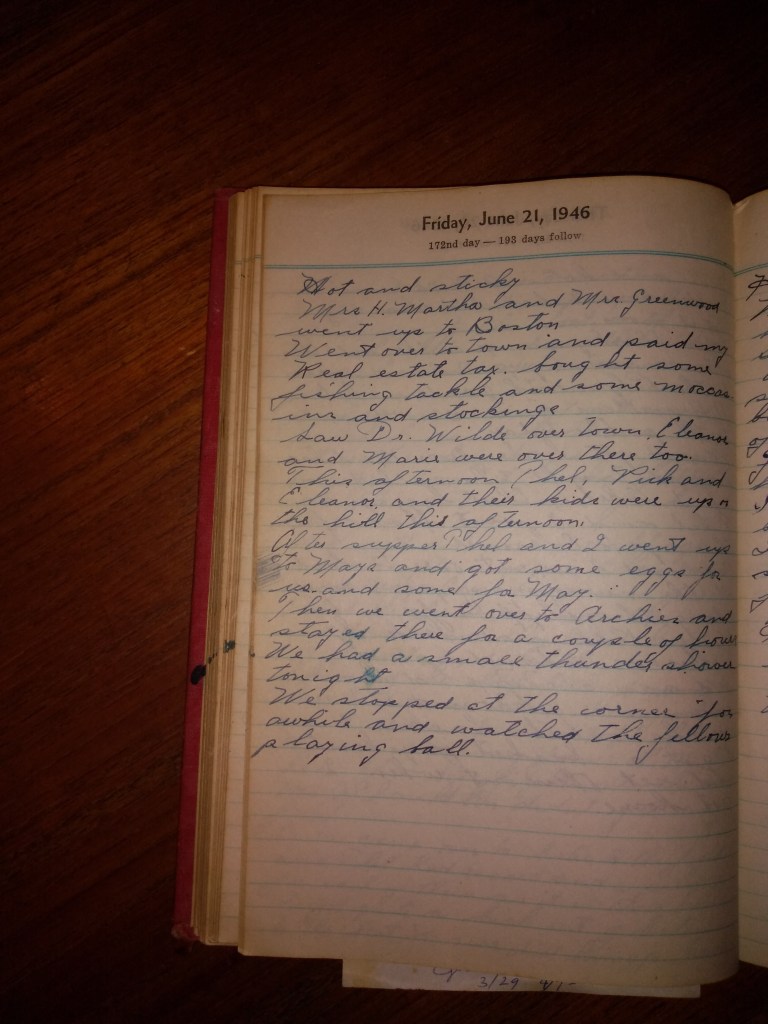 Friday, June 21, 1946
172nd day — 193 days follow
Hot and sticky
Mrs H. Martha and Mrs. Greenwood
went up to Boston
Went over to town and paid my
Real estate tax. bought some
fishing tackle and some moccas
ins and stockings
Saw Dr. Wilde over town. Eleanor
and Marie were over there too.
This afternoon Phel, Dick and
Eleanor and their kids were up on
the hill this afternoon.
After supper Phel and I went up
to Mays and got some eggs for
us and some for May.
Then we went over to Archies and
stayed there for a couple of hours
We had a small thunder shower
tonight
We stopped at the corner for
awhile and watched the fellows
playing ball.
3/29